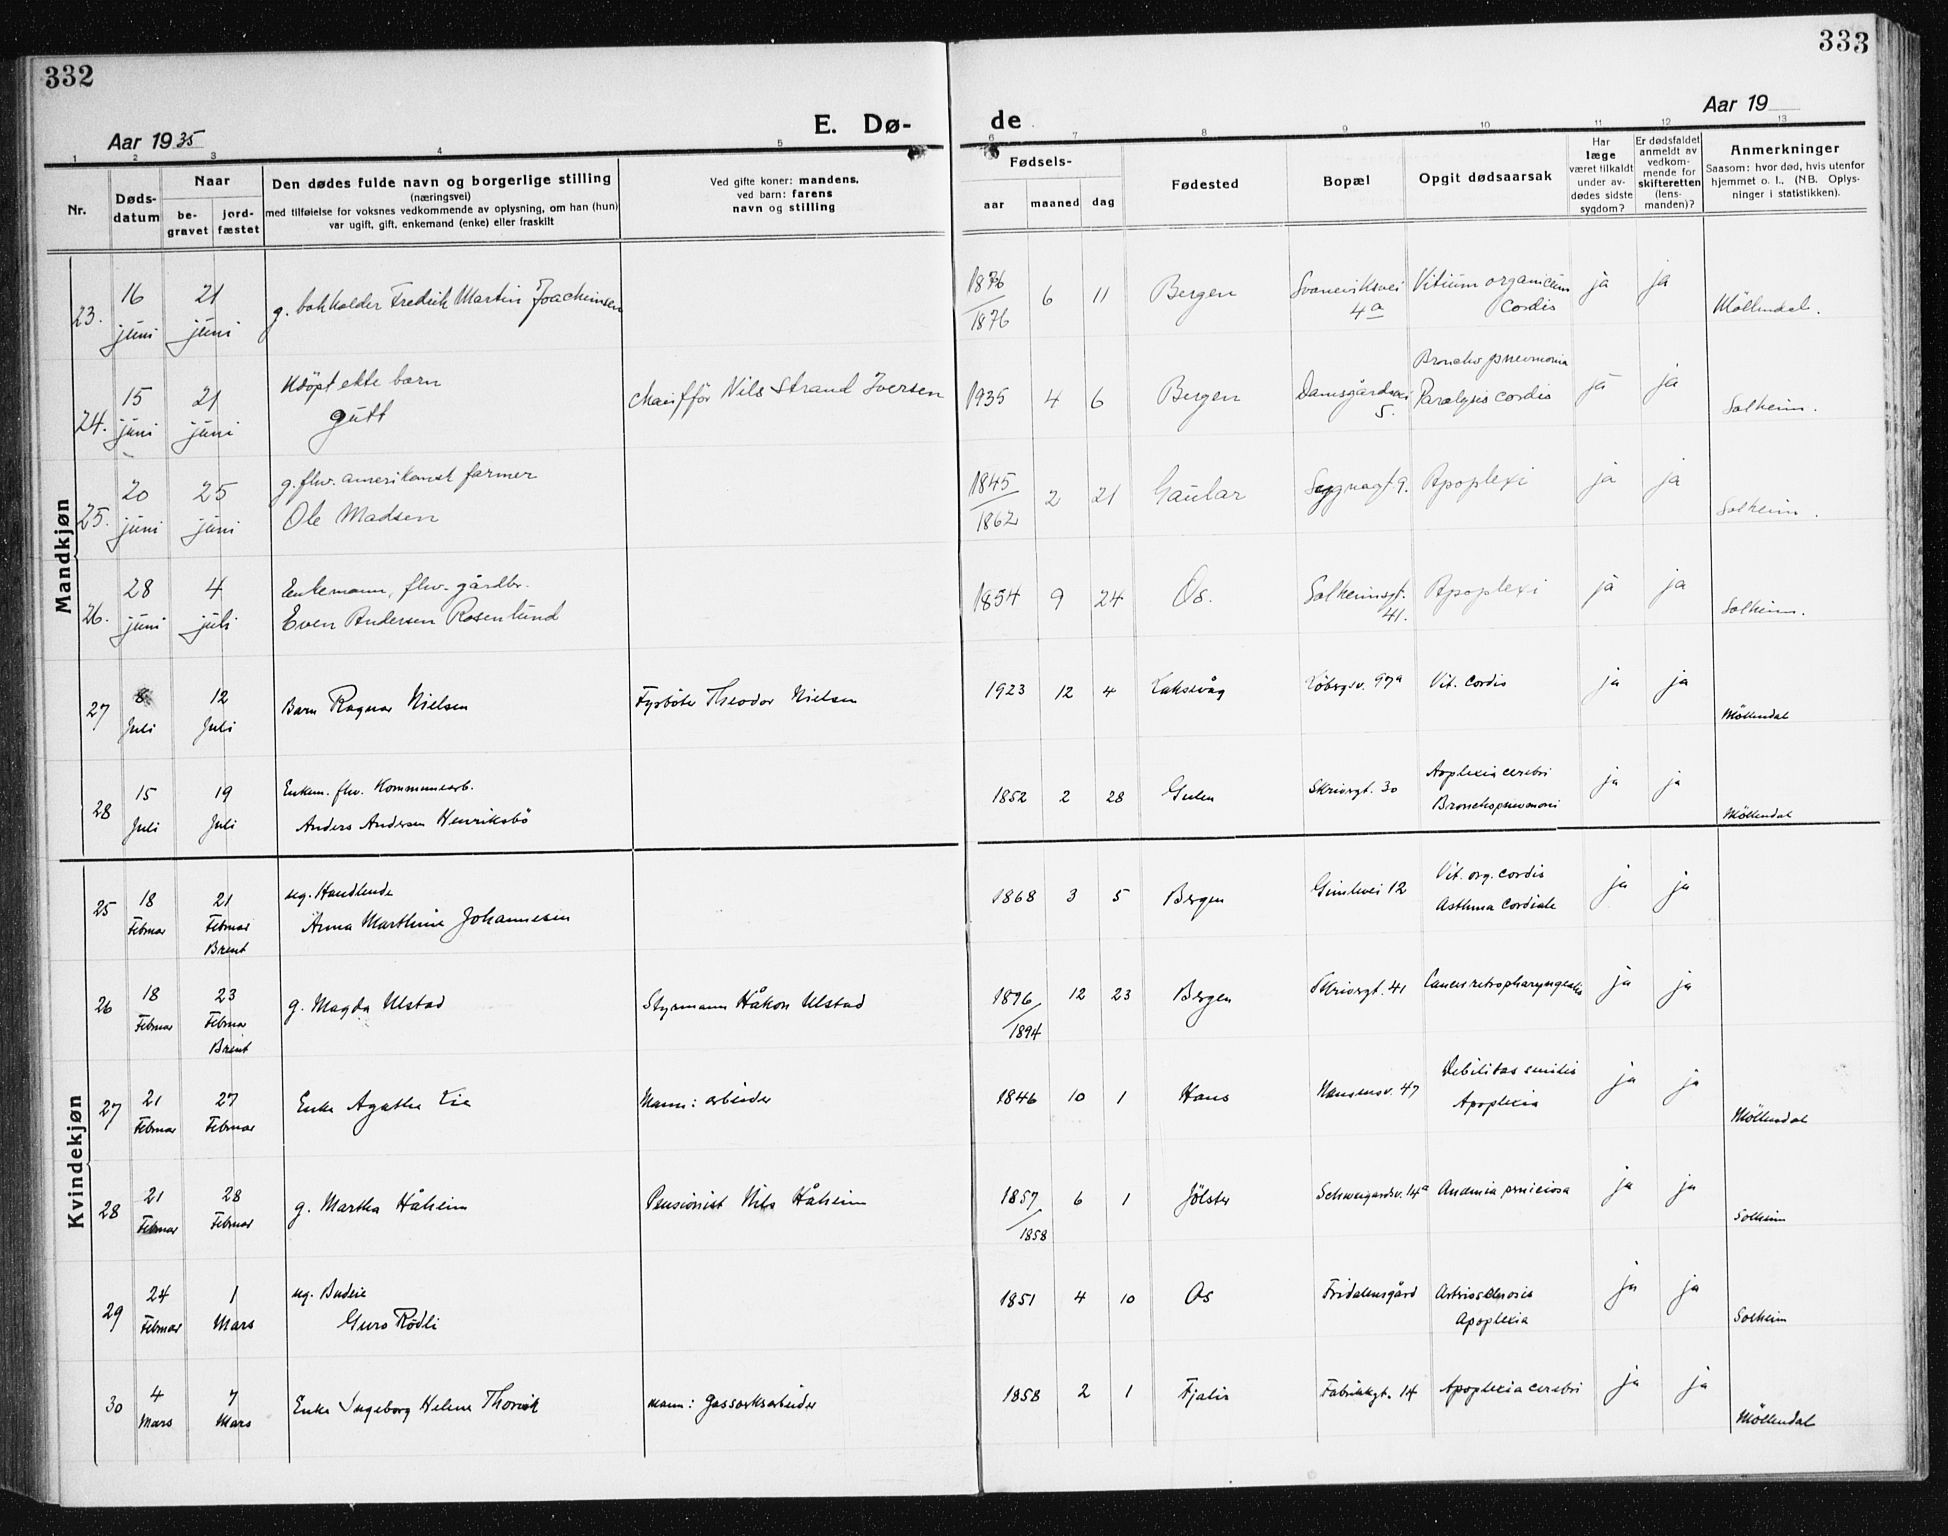 332
333
Aar 1935
E. Dø-
de
Aar 19
1 2 3 4 5 6 7 8 9 10 11 12 13
Nr.
Døds-
datum
Naar
be-
gravet
jord-
fæstet
Den dødes fulde navn og borgerlige stilling
(næringsvei)
med tilføielse for voksnes vedkommende av oplysning, om han (hun)
var ugift, gift, enkemand (enke) eller fraskilt
Ved gifte koner: mandens,
ved barn: farens
navn og stilling
Fødsels-
aar
maaned
dag
Fødested
Bopæl
Opgit dødsaarsak
Har
læge
været tilkaldt
under av-
dødes sidste
sygdom?
Er dødsfaldet
anmeldt av
vedkom-
mende for
skifteretten
(lens-
manden)?
Anmerkninger
Saasom: hvor død, hvis utenfor
hjemmet o. l., (NB. Oplys-
ninger i statistikken).
Mandkjøn
23. 16 juni 21 juni g. bokholder Fredrik Martin Joachimsen 1876/1876 6 11 Bergen Svaneviksvei 4a Vitium organicum Cordis ja ja Møllendal.
24. 15 juni 21 juni Udøpt ekte barn gutt Chauffør Nils Strand Iversen 1935 4 6 Bergen Damsgårdsvei 5. Broncho pneumonia Paralysis Cordis ja ja Solheim.
25. 20 juni 25 juni g. fhv. amerikansk farmer Ole Madsen 1845/1862 2 21 Gaular Sygnagt. 9. Apoplexi ja ja Solheim.
26. 28 juni 4 juli Enkemann, fhv. gårdbr. Even Andersen Rosenlund 1854 9 24 Os. Solheimsgt. 41. Apoplexi ja ja Solheim.
27 8 Juli 12 Juli Barn Ragnar Nielsen Fyrbøter Theodor Nielsen 1923 12 4 Laksevåg Løbergsv. 97a Vit. Cordis ja ja Møllendal
28 15 Juli 19 Juli Enkem. fhv. Kommunearb. Anders Andersen Henriksbø 1852 2 28 Gulen Skrivergt. 30 Applexia cerebri Bronchopneumoni ja ja Møllendal
Kvindekjøn
25 18 Februar 21 Februar Brent ug. Handlende Anna Marthine Johannesen 1868 3 5 Bergen Gimlevei 12 Vit. org. cordis Asthma Cordiale ja ja
26 18 Februar 23 Februar Brent g. Magda Ulstad Styrmann Håkon Ulstad 1896/1894 12 23 Bergen Skrivergt. 41 Cancer retropharyngealis ja ja
27 21 Februar 27 Februar Enke Agathe Lie Mann: arbeider 1846 10 1 Haus Hansensv. 47 Debilitas senilis Apoplexia ja ja Møllendal
28 21 Februar 28 Februar g. Martha Håheim Pensionist Nils Håheim 1857/1858 6 1 Jølster Schweigaardsv. 14a Anæmia perniciosa ja ja Solheim
29 24 Februar 1 Mars ug. Budeie Guro Rødli 1851 4 10 Os Fridalensgård Arteriosclerosis Apoplexia ja ja Solheim
30 4 Mars 7 Mars Enke Ingeborg Helene Thorvik Mann: Gassverksarbeider 1858 2 1 Fjaler Fabrikkgt. 14 Apoplexia cerebri ja ja Møllendal